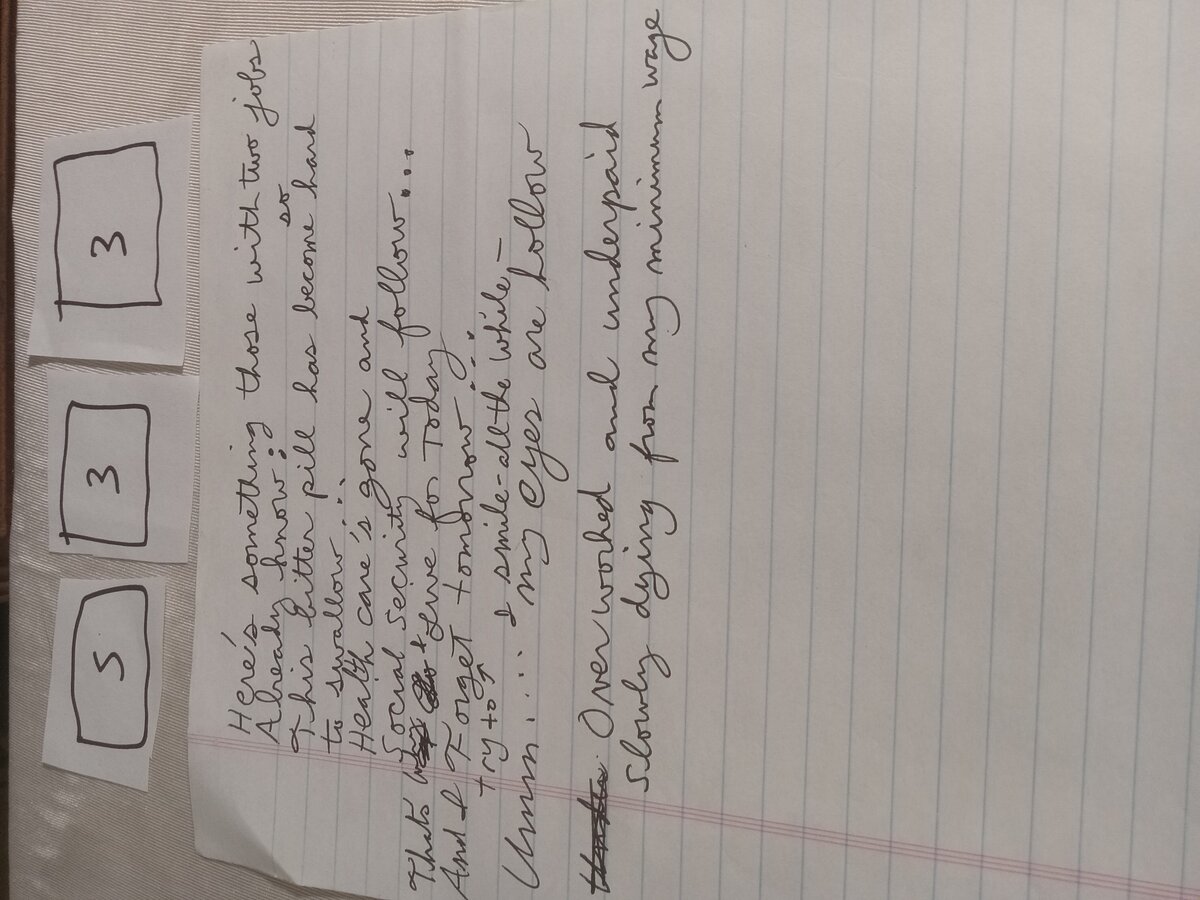 5 3 3
Here's something those with two jobs
Already know:
so
This bitter pill has become hard
to swallow...
Health care's gone and
Social security will follow...
That's I Live for Today
And I Forget tomorrow...
try to I smile-all the while-
Umm... my eyes are hollow
Overworked and underpaid
slowly dying from my minimum wage